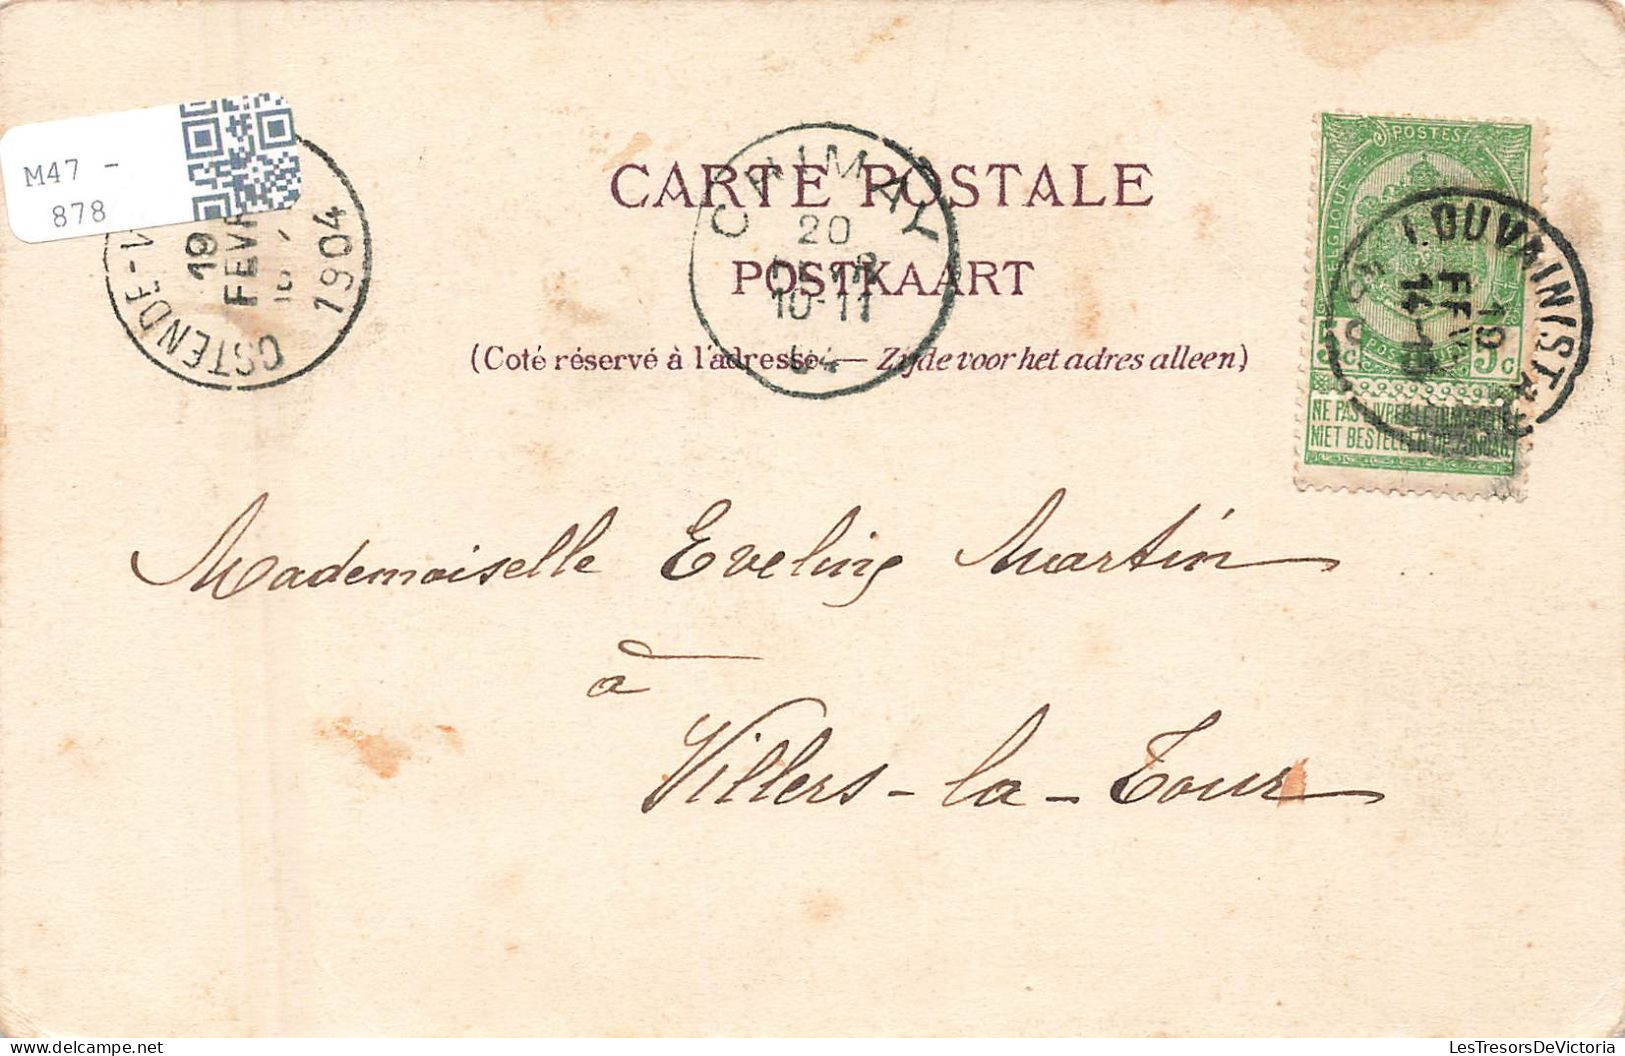 M47 -
878
OSTENDE-
19
FEVR
1904
CHIMAY
20
10-11
04
CARTE POSTALE
POSTKAART
(Coté réservé à l'adresse. — Zijde voor het adres alleen)
POSTES
BELGIQUE
5c 5c
NE PAS LIVRER LE DIMANCHE
NIET BESTELLEN OP ZONDAG
LOUVAIN (ST
19
14-15
Mademoiselle Eveline Martin
à
Villers-la-Tour
LesTresorsDeVictoria